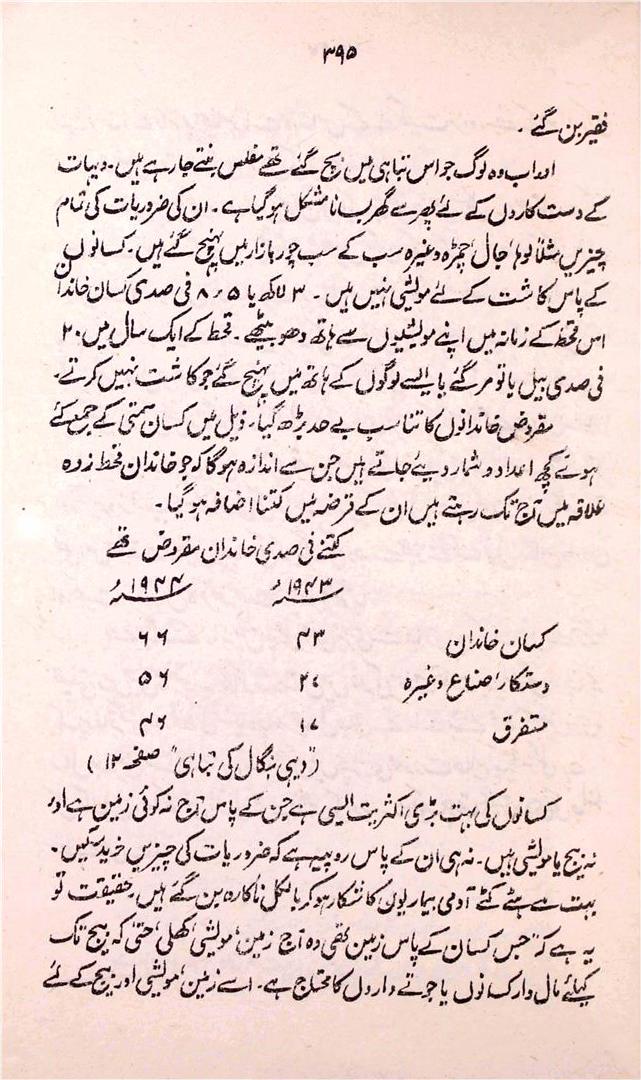 ۳۹۵
فقیر بن گئے ۔
اور اب وہ لوگ جو اس تباہی میں بچ گئے تھے مفلس بنتے جا رہے ہیں۔ دیہات
کے دست کاروں کے لئے پھر سے گھر بسانا مشکل ہو گیا ہے ۔ ان کی ضروریات کی تمام
چیزیں مثلاً لوہا، جال، چمڑہ وغیرہ سب کے سب چور بازار میں پہنچ گئے ہیں۔ کسانوں
کے پاس کاشت کے لئے مولیشی نہیں ہیں ۔ ۳ لاکھ یا ۸٫۵ فی صدی کسان خاندان
اس قحط کے زمانہ میں اپنے مولیشیوں سے ہاتھ دھو بیٹھے ۔ قحط کے ایک سال میں ۲۰
فی صدی بیل یا تو مر گئے یا ایسے لوگوں کے ہاتھ میں پہنچ گئے جو کاشت نہیں کرتے ۔
مقروض خاندانوں کا تناسب بے حد بڑھ گیا، ذیل میں کسان ستی کے جمع کئے
ہوئے کچھ اعداد و شمار دیئے جاتے ہیں جن سے اندازہ ہوگا کہ جو خاندان قحط زدہ
علاقہ میں آج تک رہتے ہیں ان کے قرضہ میں کتنا اضافہ ہو گیا ۔
کتنے فی صدی خاندان مقروض تھے
۱۹۴۳ء ۱۹۴۴ء
کسان خاندان ۴۳ ۶۶
دستکار، صناع وغیرہ ۲۷ ۵۶
متفرق ۱۷ ۴۶
(”دیہی بنگال کی تباہی“ صفحہ ۱۲)
کسانوں کی بہت بڑی اکثریت ایسی ہے جن کے پاس آج نہ کوئی زمین ہے اور
نہ بیج یا مولیشی ہیں۔ نہ ہی ان کے پاس روپیہ ہے کہ ضروریات کی چیزیں خرید سکیں۔
بہت سے ہٹے کٹے آدمی بیماریوں کا شکار ہو کر بالکل ناکارہ بن گئے ہیں۔ حقیقت تو
یہ ہے کہ ”جس کسان کے پاس زمین تھی وہ آج زمین، مولیشی، کھلی، حتیٰ کہ بیج تک
کیلئے مال دار کسانوں یا جوتے داروں کا محتاج ہے۔ اسے زمین، مولیشی اور بیج کے لئے